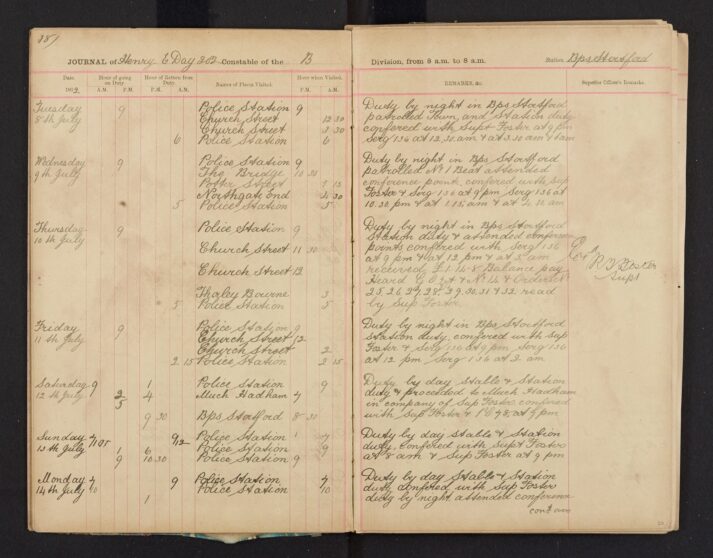 187
JOURNAL of Henry E Day 202 Constable of the B
Date. Hour of going on Duty Hour of Return from Duty Names of Places Visited. Hour when Visited.
A.M. P.M. P.M. A.M. P.M. A.M.
Tuesday 9 Police Station 9
8th July Church Street 12 30
Church Street 3 30
6 Police Station 6
Wednesday 9 Police Station 9
9th July The Bridge 10 30
Potter Street 1 15
Northgate End
5 Police Station 5
Thursday 9 Police Station 9
10th July
Church Street 11 30
Church Street 12
Thorley Bourne 3
5 Police Station 5
Friday 9 Police Station 9
11th July Church Street 12
Church Street 2
2 15 Police Station 2 15
Saturday 9 1 Police Station 9
12th July 2 4 Much Hadham 4
5
9 30 Bps Stortford 8 30
Sunday Police Station
13th July 1 6 Police Station 9
9 10 30 Police Station 9
Monday 9 Police Station
14th July 10 Police Station 10
1
Division, from 8 a.m. to 8 a.m. Station Bps Stortford
REMARKS, &c. Superior Officer's Remarks.
Duty by night in Bps Stortford
patrolled Town, and Station duty
confered with Supt Foster at 9 pm
Serg 136 at 12.30 am & at 3.30 am &
Duty by night in Bps Stortford
patrolled No 1 Beat attended
conference points, confered with Sup
Foster & Serg 136 at 9 pm Serg 136 at
10.30 pm & at 1.15 am & at
Duty by night in Bps Stortford
Station duty & attended conference
points confered with Serg 136
at 9 pm & at 12 pm & at 3 am
received Balance pay
Heard & Orders
25, 26, 27, 28, 29, 30, 31 & 32 read
by Sup Foster
Foster
Supt
Duty by night in Bps Stortford
station duty, confered with Sup
Foster & Serg 136 at 9 pm Serg 136
at 12 pm Serg 136 at 2 am
Duty by day Stable & Station
duty & proceeded to Much Hadham
in company of Sup Foster confered
with Sup Foster & at 9 pm
Duty by day Stable & Station
duty, confered with Supt Foster
at 8 am & Sup Foster at 9 pm
Duty by day Stable & Station
duty confered with Sup Foster
duty by night attended conference